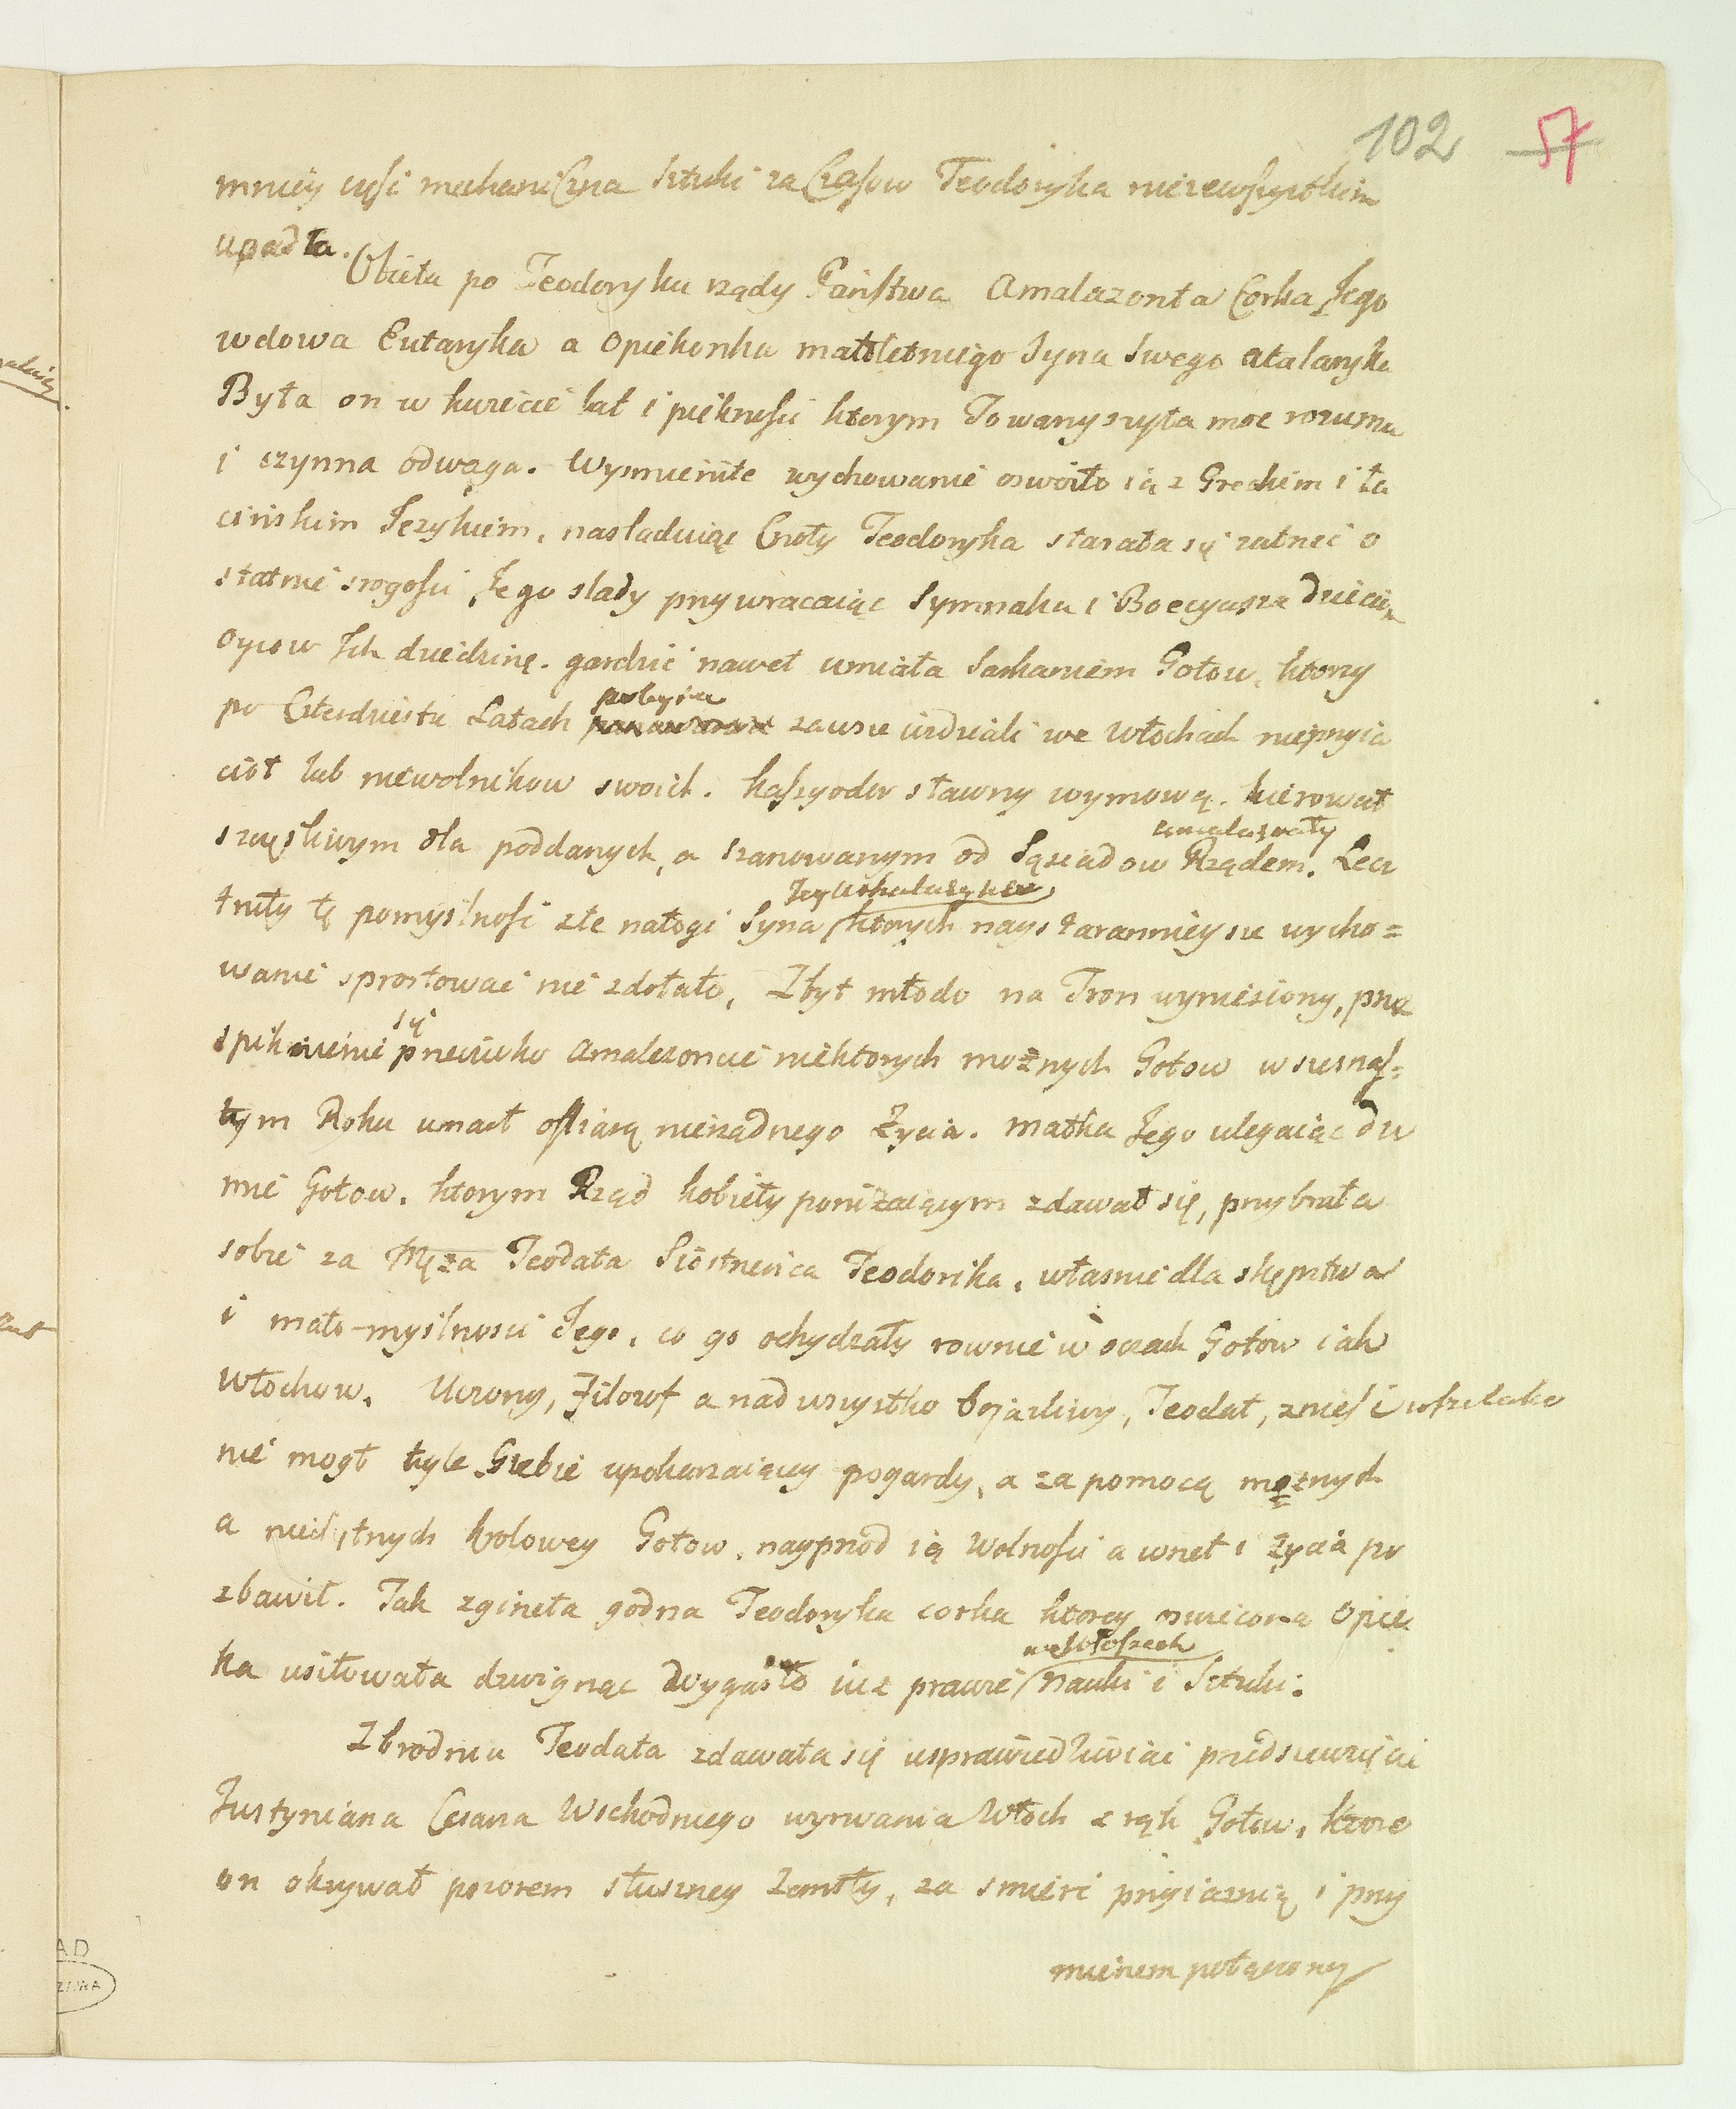 102 57
mniey część mechaniczna Sztuki za Czasow Teodoryka niezewszystkim
upadła.
Obieła po Teodoryku rządy Państwa Amalazonta Corka Jego
wdowa Eutaryka a Opiekonka małoletniego Syna Swego Atalaryka
Była on w kwiecie lat i piękności ktorym Towarzyszyła moc rozumu
i czynna odwaga. Wysmienite wychowanie oswoiło ią z Greckim i ła
cińskim Językiem, nasladuiąc Cnoty Teodoryka starała się zatrzeć o
statnie srogości Jego slady przywracaiąc Symmaka i Boecyusza Dzieciom
Oycow Ich dziedzinę. gardzić nawet umiała Sarkaniem Gotow, ktorzy
pobycia
po Czterdziestu Latach zawsze widzieli we Włochach nieprzyia
cioł lub niewolnikow swoich. Kassyodor sławny wymową. kierował
Amalazonty
szczęsliwym dla poddanych, a szanowanym od Sąsiadow Rządem. Lecz
truły tę pomyslność złe nałogi Syna ktorych naystarannieysze wycho=
wanie sprostować nie zdołało, Zbyt młodo na Tron wyniesiony, przez
się
spiknienie przeciwko Amalezoncie niektorych możnych Gotow w szesnas=
tym Roku umarł offiarą nierządnego Życia. matka Jego ulegaiąc du
mie Gotow. ktorym Rząd kobiety poniżaiącym zdawał się, przybrała
sobie za Męża Teodata Siostrzeńca Teodorika, własnie dla skępstwa
i mało-myślności Jego, co go ochydzały rownie w oczach Gotow iak
Włochow. Uczony, Filozof a nadwszystko bojazliwy, Teodat, znieść wszelako
nie mogł tyle Siebie upokarzaiącey pogardy, a za pomocą możnych
a niechętnych krolowey Gotow, nayprzod ią Wolności a wnet i Życia po
zbawił. Tak zgineła godna Teodoryka corka ktorey oswiecona Opie
we Włoszech
ka usiłowała dzwignąc wygasło iuż prawie nauki i Sztuki.
Zbrodnia Teodata zdawała się usprawiedliwiać przedsiewzięcie
Justyniana Cesarza Wschodniego wyrwania Włoch z rąk Gotow, ktore
on okrywał pozorem słuszney Zemsty, za smierć przyiaznią i przy
mierzem połączoney